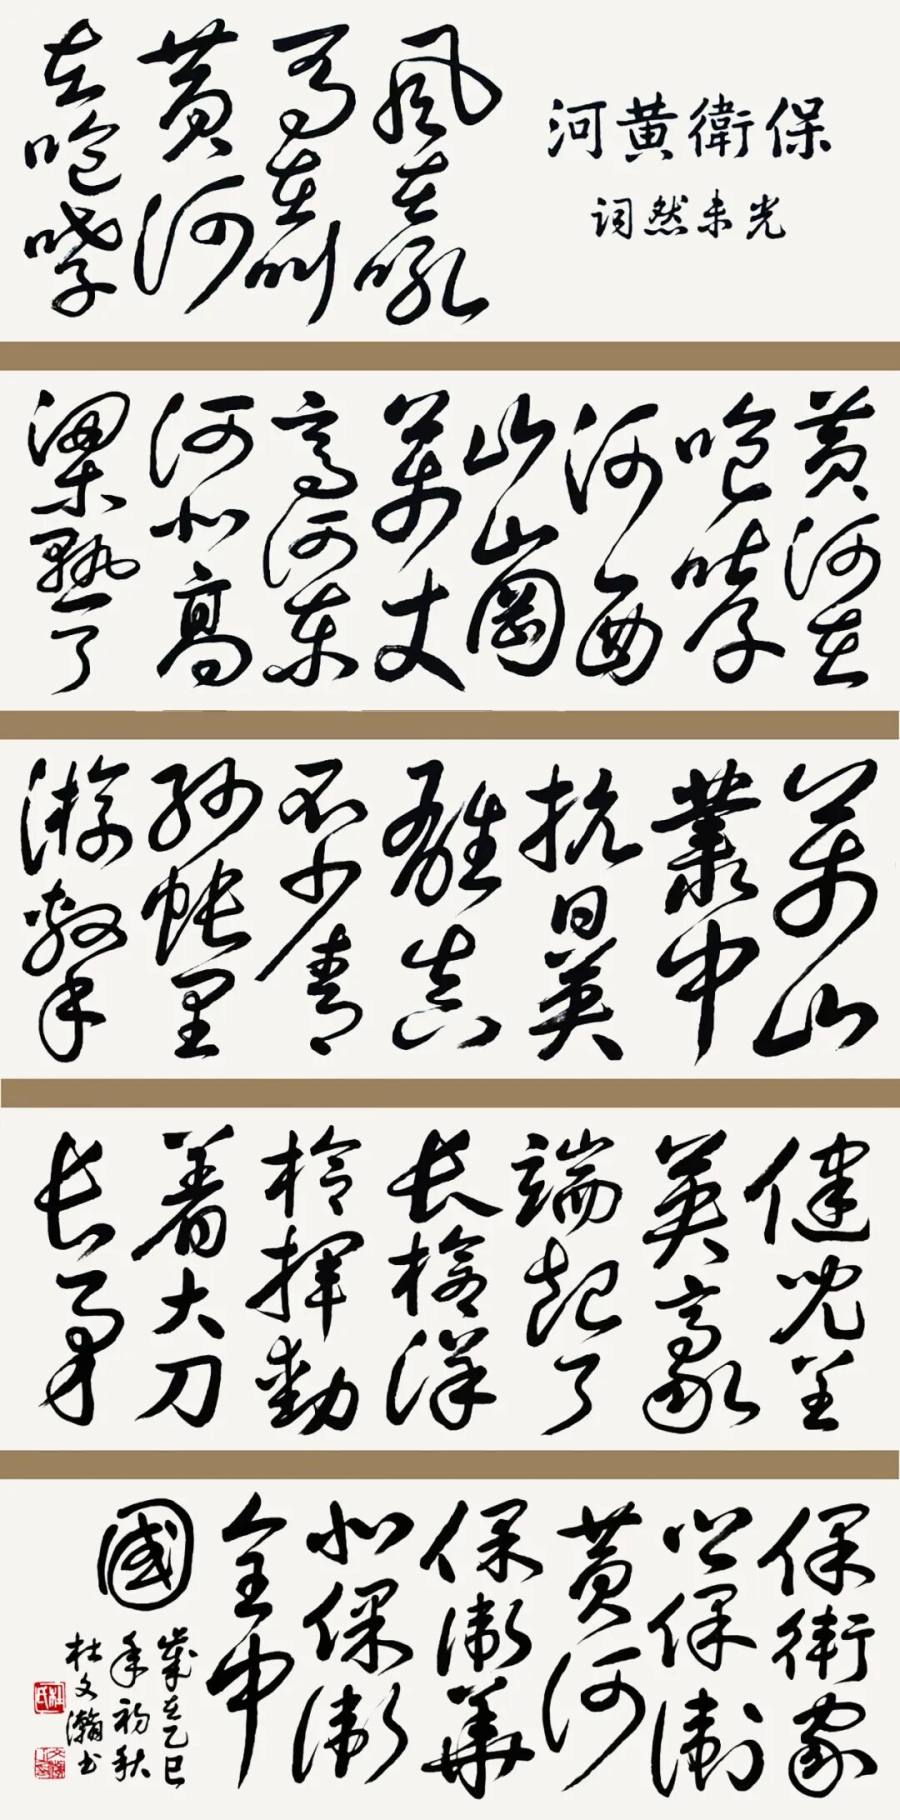 保衛黄河
光未然词
風在吼
馬在叫
黄河
在咆哮
黄河在
咆哮
河西
山崗
萬丈
高河東
河北高
粱熟了
萬山
叢中
抗日英
雄真
不少青
紗帐里
游擊
健兒呈
英豪
端起了
长槍洋
槍揮動
着大刀
长矛
保衛家
乡保衛
黄河
保衛華
北保衛
全中
國
歲在乙巳
年初秋
杜文瀚书
杜氏